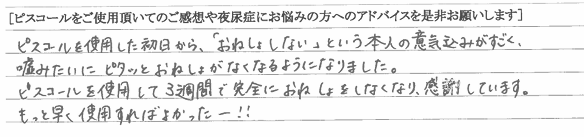 [ピスコールをご使用頂いてのご感想や夜尿症にお悩みの方へのアドバイスを是非お願いします]
ピスコールを使用した初日から、「おねしょしない」という本人の意気込みがすごく、
嘘みたいにピタッとおねしょがなくなるようになりました。
ピスコールを使用して3週間で完全におねしょをしなくなり、感謝しています。
もっと早く使用すればよかったー!!